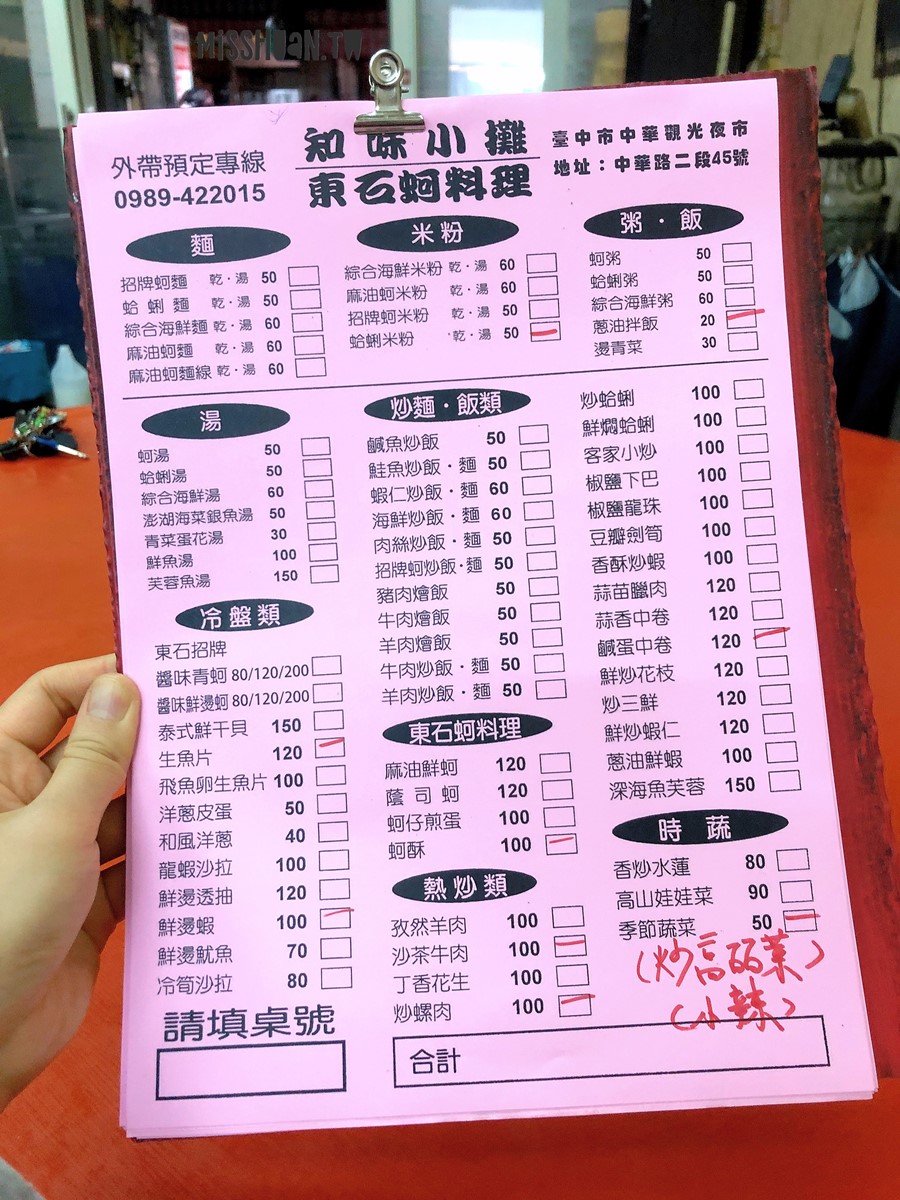 MISSHUAN.TW
外帶預定專線
0989-422015
知味小攤
東石蚵料理
臺中市中華觀光夜市
地址：中華路二段45號
麵
招牌蚵麵 乾·湯 50
蛤蜊麵 乾·湯 50
綜合海鮮麵 乾·湯 60
麻油蚵麵 乾·湯 60
麻油蚵麵線 乾·湯 60
米粉
綜合海鮮米粉 乾·湯 60
麻油蚵米粉 乾·湯 60
招牌蚵米粉 乾·湯 50
蛤蜊米粉 乾·湯 50
粥·飯
蚵粥 50
蛤蜊粥 50
綜合海鮮粥 60
蔥油拌飯 20
燙青菜 30
湯
蚵湯 50
蛤蜊湯 50
綜合海鮮湯 60
澎湖海菜銀魚湯 50
青菜蛋花湯 30
鮮魚湯 100
芙蓉魚湯 150
冷盤類
東石招牌
醬味青蚵 80/120/200
醬味鮮燙蚵 80/120/200
泰式鮮干貝 150
生魚片 120
飛魚卵生魚片 100
洋蔥皮蛋 50
和風洋蔥 40
龍蝦沙拉 100
鮮燙透抽 120
鮮燙蝦 100
鮮燙魷魚 70
冷筍沙拉 80
炒麵·飯類
鹹魚炒飯 50
鮭魚炒飯·麵 50
蝦仁炒飯·麵 60
海鮮炒飯·麵 60
肉絲炒飯·麵 50
招牌蚵炒飯·麵 50
豬肉燴飯 50
牛肉燴飯 50
羊肉燴飯 50
牛肉炒飯·麵 50
羊肉炒飯·麵 50
東石蚵料理
麻油鮮蚵 120
蔭司蚵 120
蚵仔煎蛋 100
蚵酥 100
熱炒類
孜然羊肉 100
沙茶牛肉 100
丁香花生 100
炒螺肉 100
炒蛤蜊 100
鮮燜蛤蜊 100
客家小炒 100
椒鹽下巴 100
椒鹽龍珠 100
豆瓣劍筍 100
香酥炒蝦 100
蒜苗臘肉 120
蒜香中卷 120
鹹蛋中卷 120
鮮炒花枝 120
炒三鮮 120
鮮炒蝦仁 120
蔥油鮮蝦 100
深海魚芙蓉 150
時蔬
香炒水蓮 80
高山娃娃菜 90
季節蔬菜 50
(炒高丽菜)
(小辣)
請填桌號
合計